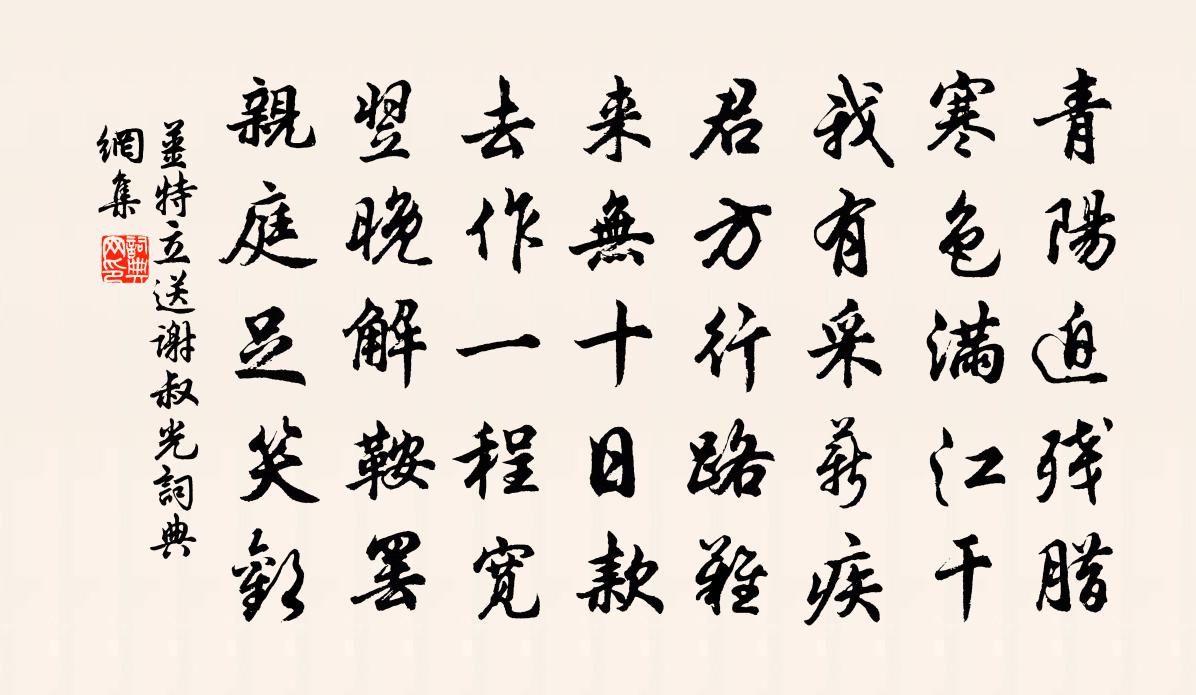 青陽迫残腊
寒色滿江干
我有采薪疾
君方行路難
来無十日款
去作一程寬
翌晚解鞍罷
親庭足笑歡
薑特立送谢叔光詞典
網集
詞典网印